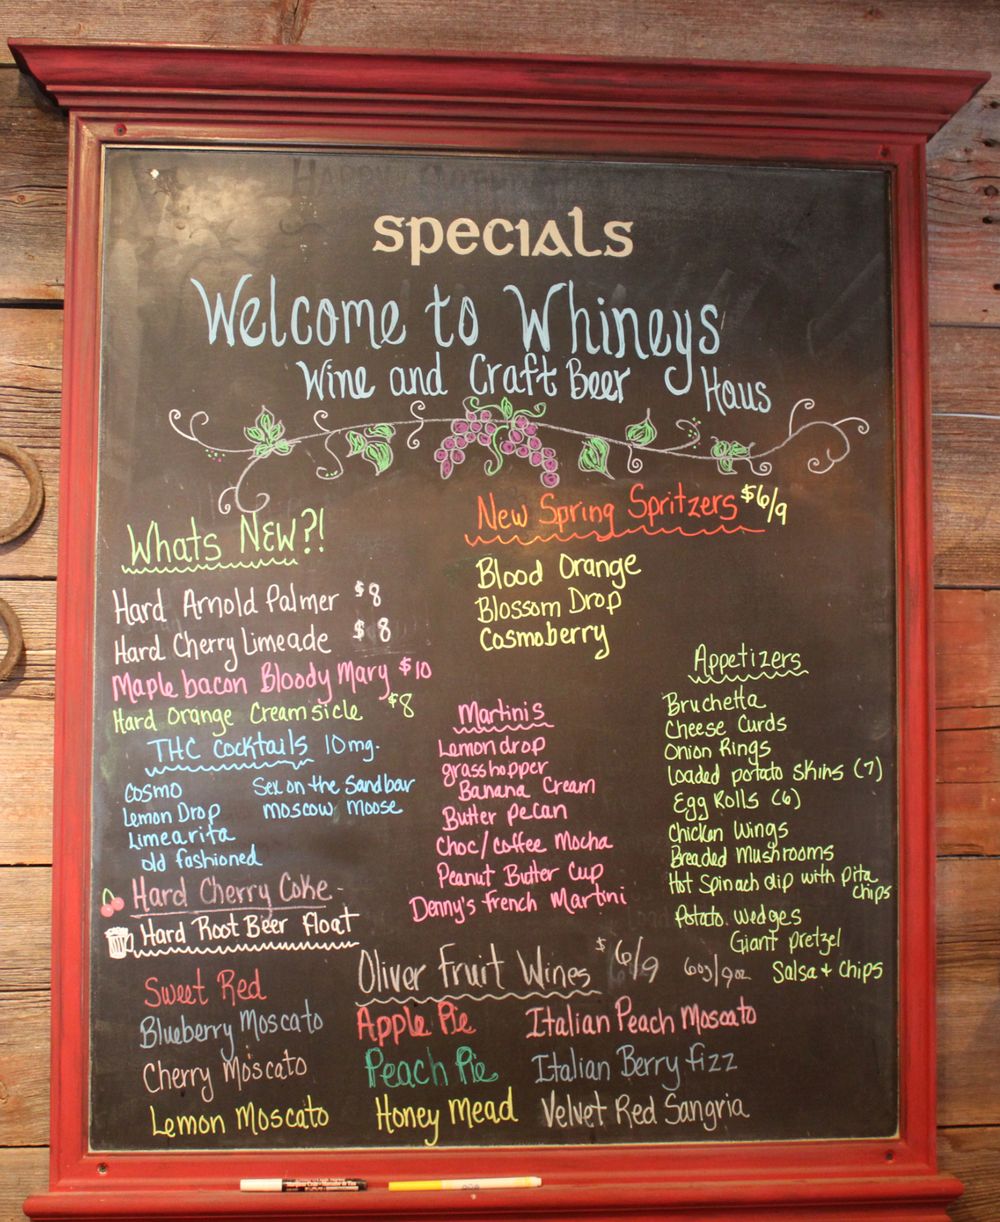 specials
Welcome to Whineys
Wine and Craft Beer Haus
Whats New?!
Hard Arnold Palmer $8
Hard Cherry Limeade $8
Maple bacon Bloody Mary $10
Hard Orange Creamsicle $8
THC Cocktails 10mg.
Cosmo
Lemon Drop
Limearita
old fashioned
Sex on the Sandbar
Moscow Moose
Hard Cherry Coke
Hard Root Beer Float
New Spring Spritzers $6/9
Blood Orange
Blossom Drop
Cosmoberry
Martinis
Lemondrop
grasshopper
Banana Cream
Butter pecan
Choc/Coffee Mocha
Peanut Butter Cup
Denny's french Martini
Appetizers
Bruchetta
Cheese Curds
Onion Rings
Loaded potato skins (7)
Egg Rolls (6)
Chicken Wings
Breaded Mushrooms
Hot Spinach dip with pita
chips
Potato Wedges
Giant pretzel
Salsa + Chips
Oliver Fruit Wines $6/9 6oz/9oz
Sweet Red
Blueberry Moscato
Cherry Moscato
Lemon Moscato
Apple Pie
Peach Pie
Honey Mead
Italian Peach Moscato
Italian Berry fizz
Velvet Red Sangria